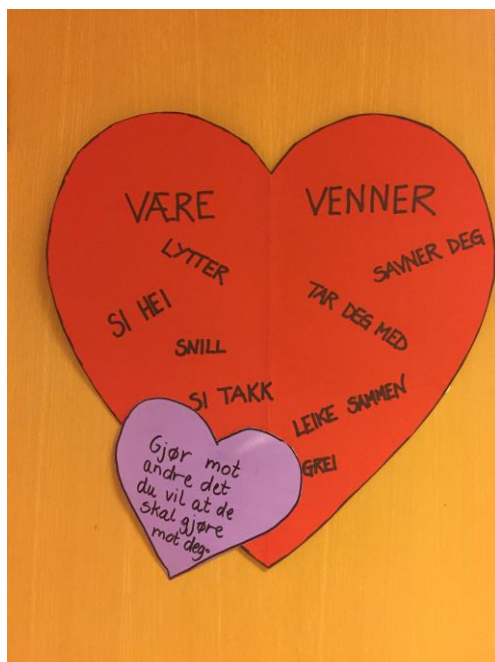 VÆRE VENNER
LYTTER
SI HEI
SNILL
SI TAKK
SAVNER DEG
TAR DEG MED
LEIKE SAMMEN
GREI
Gjør mot
andre det
du vil at de
skal gjøre
mot deg.